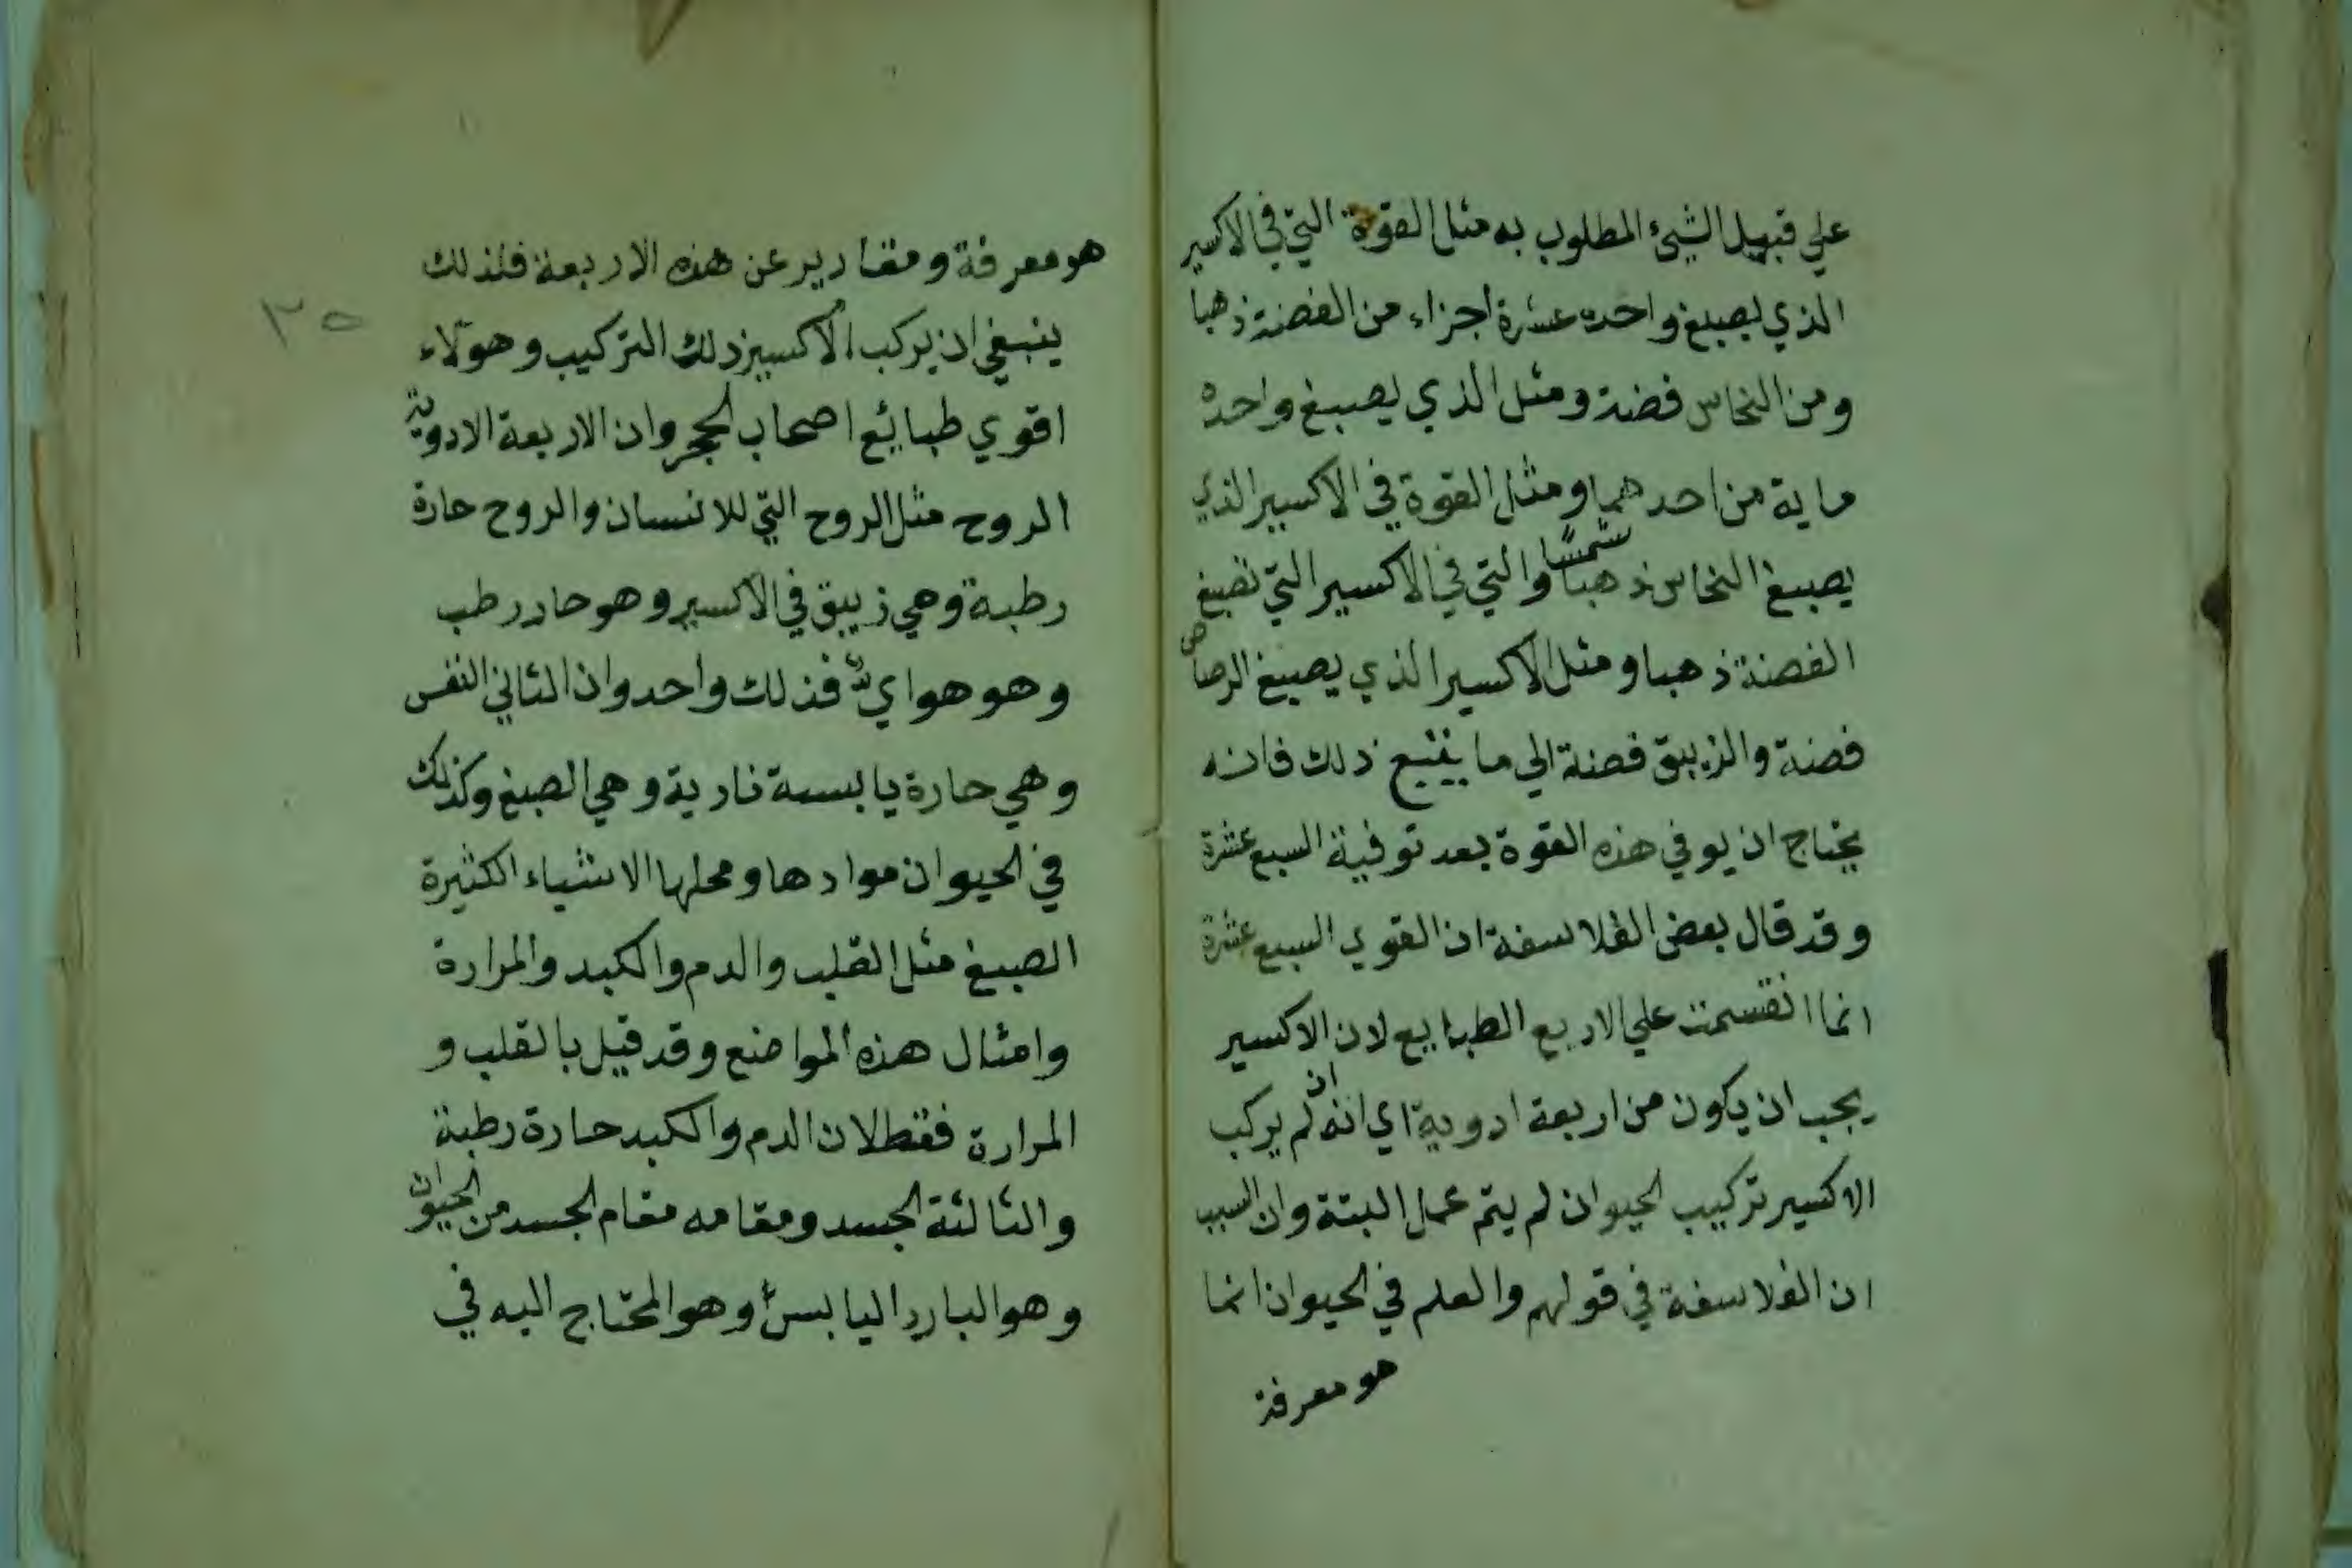 علي قبيل الشيئ المطلوب به مثل القوة التي في الاكسير
الذي يصبغ واحده عشرة اجزاء من الفضة ذهبا
ومن النحاس فضة ومثل الذي يصبغ واحده
ماية من احدهما ومثل القوة في الاكسير الذي
يصبغ النحاس ذهبا شمسا والتي في الاكسير التي تصبغ
الفضة ذهبا ومثل الاكسير الذي يصبغ الرصاص
فضة والزيبق فضة الي ما يتبع ذلك فانه
يحتاج ان يوفي هذه القوة بعد توفية السبع عشرة
وقد قال بعض الفلاسفة ان القوي السبع عشرة
انما انقسمت علي الاربع الطبايع لان الاكسير
يجب ان يكون من اربعة ادوية اي انه ان لم يركب
الاكسير تركيب الحيوان لم يتم عمل البتة وان السبب
ان الفلاسفة في قولهم والعلم في الحيوان انما
هو معرفة
هو معرفة ومقادير عن هذه الاربعة فلذلك
ينبغي ان يركب الاكسير ذلك التركيب وهولاء
اقوي طبائع اصحاب الحجر وان الاربعة الادوية
الروح مثل الروح التي للانسان والروح حارة
رطبة وهي زيبق في الاكسير وهو حار رطب
وهو هوايي فذلك واحد وان الثاني النفس
وهي حارة يابسة نارية وهي الصبغ وكذلك
في الحيوان موادها ومحلها الاشياء الكثيرة
الصبغ مثل القلب والدم والكبد والمرارة
وامثال هذه المواضع وقد قيل بالقلب و
المرارة فقط لان الدم والكبد حارة رطبة
والثالثة الجسد ومقامه مقام الجسد من الحيوان
وهو البارد اليابس وهو المحتاج اليه في
٣٥